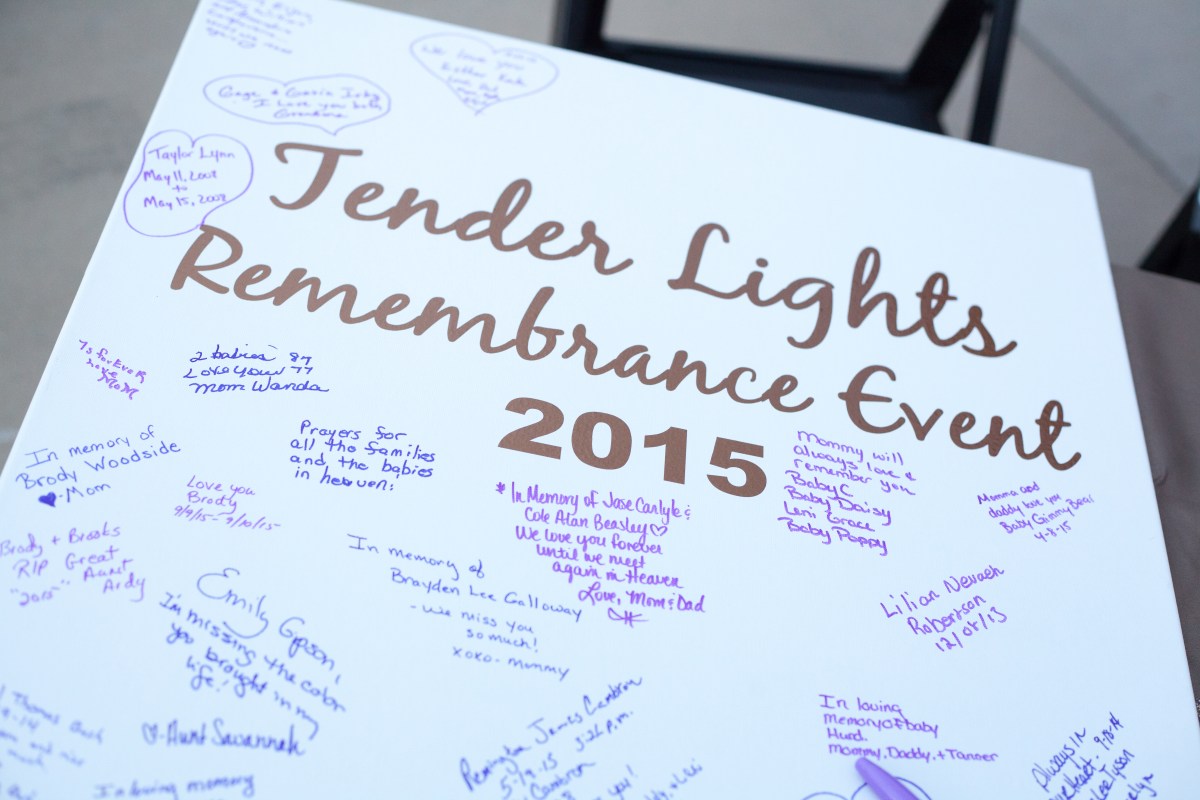 We love you
Gage + Gavin Irby
I Love you both
Grandma
Taylor Lynn
May 11, 2008
to
May 15, 2008
Tender Lights
Remembrance Event
2015
Love
MoM
2 babies 87
Love you 77
Mom Wanda
Prayers for
all the families
and the babies
in heaven:
In memory of
Brody Woodside
Mom
Love you
Brody
9/9/15 - 9/10/15
Brody + Brooks
RIP Great
"2015" Aunt
Ardy
* In Memory of Jase Carlyle &
Cole Alan Beasley
We love you forever
until we meet
again in Heaven
Love, Mom & Dad
Mommy will
always love &
remember you
Baby C
Baby Daisy
Leni Grace
Baby Poppy
Momma and
daddy love you
Baby Gimmy Bear
4-8-15
Lilian Nevaeh
Robertson
In memory of
Brayden Lee Galloway
- We miss you
so much!
xoxo - mommy
Emily Gypson,
I'm missing the color
you brought in my
life!
Aunt Savannah
James
5-19-15 5:26 p.m.
you!
In loving
memory of baby
Hurd.
Mommy, Daddy, + Tanner
Always in
Heart. 9-18-14
Lee Tyson
Thomas
much
In loving memory